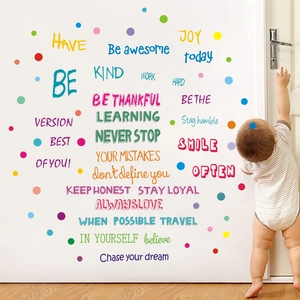 HAVE
JOY
Be awesome
today
BE
KIND
WORK
HARD
BE THANKFUL
BE THE
LEARNING
VERSION
NEVER STOP
Stay humble
BEST
YOUR MISTAKES
SMILE
OF YOU!
don't define you
OFTEN
KEEP HONEST STAY LOYAL
ALWAYS LOVE
WHEN POSSIBLE TRAVEL
IN YOURSELF believe
Chase your dream